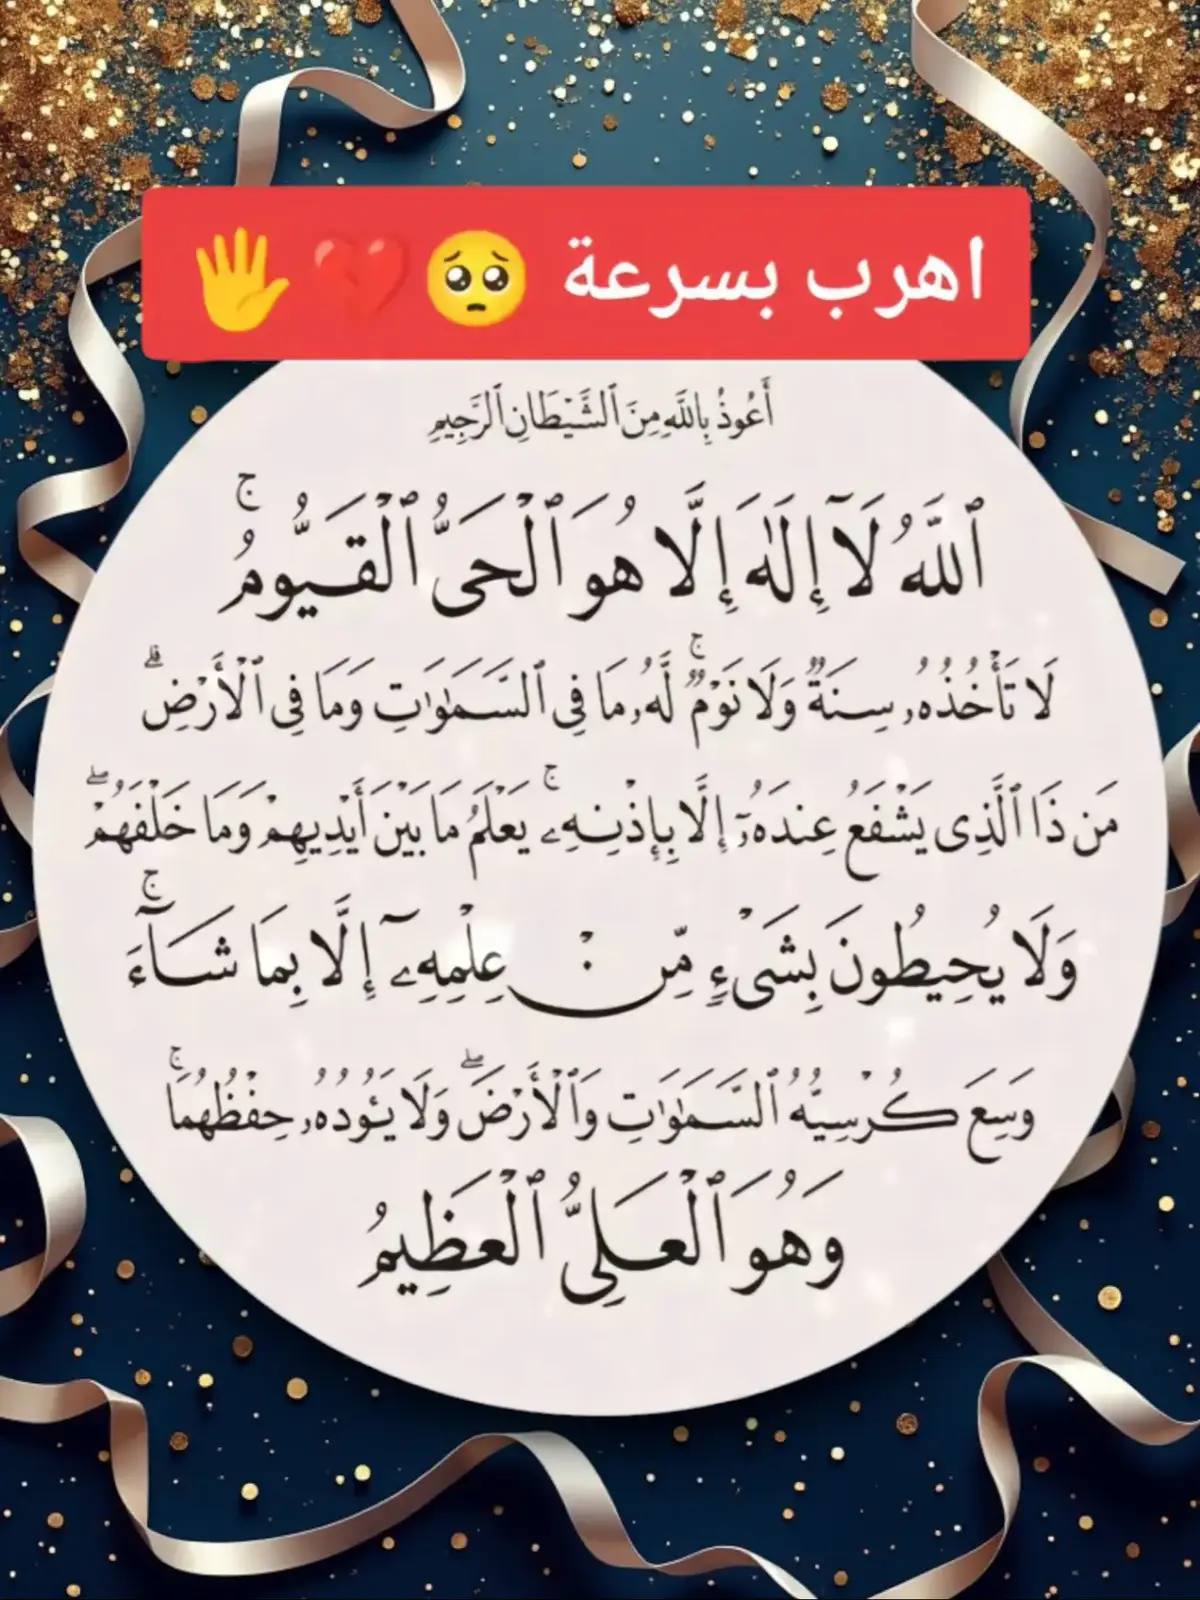 اهرب بسرعة 🥺💔🖐
أَعُوذُ بِاللَّهِ مِنَ ٱلشَّيْطَانِ ٱلرَّجِيمِ
ٱللَّهُ لَآ إِلَٰهَ إِلَّا هُوَ ٱلْحَىُّ ٱلْقَيُّومُ ۚ
لَا تَأْخُذُهُۥ سِنَةٌ وَلَا نَوْمٌ ۚ لَّهُۥ مَا فِى ٱلسَّمَٰوَٰتِ وَمَا فِى ٱلْأَرْضِ ۗ
مَن ذَا ٱلَّذِى يَشْفَعُ عِندَهُۥٓ إِلَّا بِإِذْنِهِۦ ۚ يَعْلَمُ مَا بَيْنَ أَيْدِيهِمْ وَمَا خَلْفَهُمْ ۖ
وَلَا يُحِيطُونَ بِشَىْءٍ مِّنْ عِلْمِهِۦٓ إِلَّا بِمَا شَآءَ ۚ
وَسِعَ كُرْسِيُّهُ ٱلسَّمَٰوَٰتِ وَٱلْأَرْضَ ۖ وَلَا يَـُٔودُهُۥ حِفْظُهُمَا ۚ
وَهُوَ ٱلْعَلِىُّ ٱلْعَظِيمُ